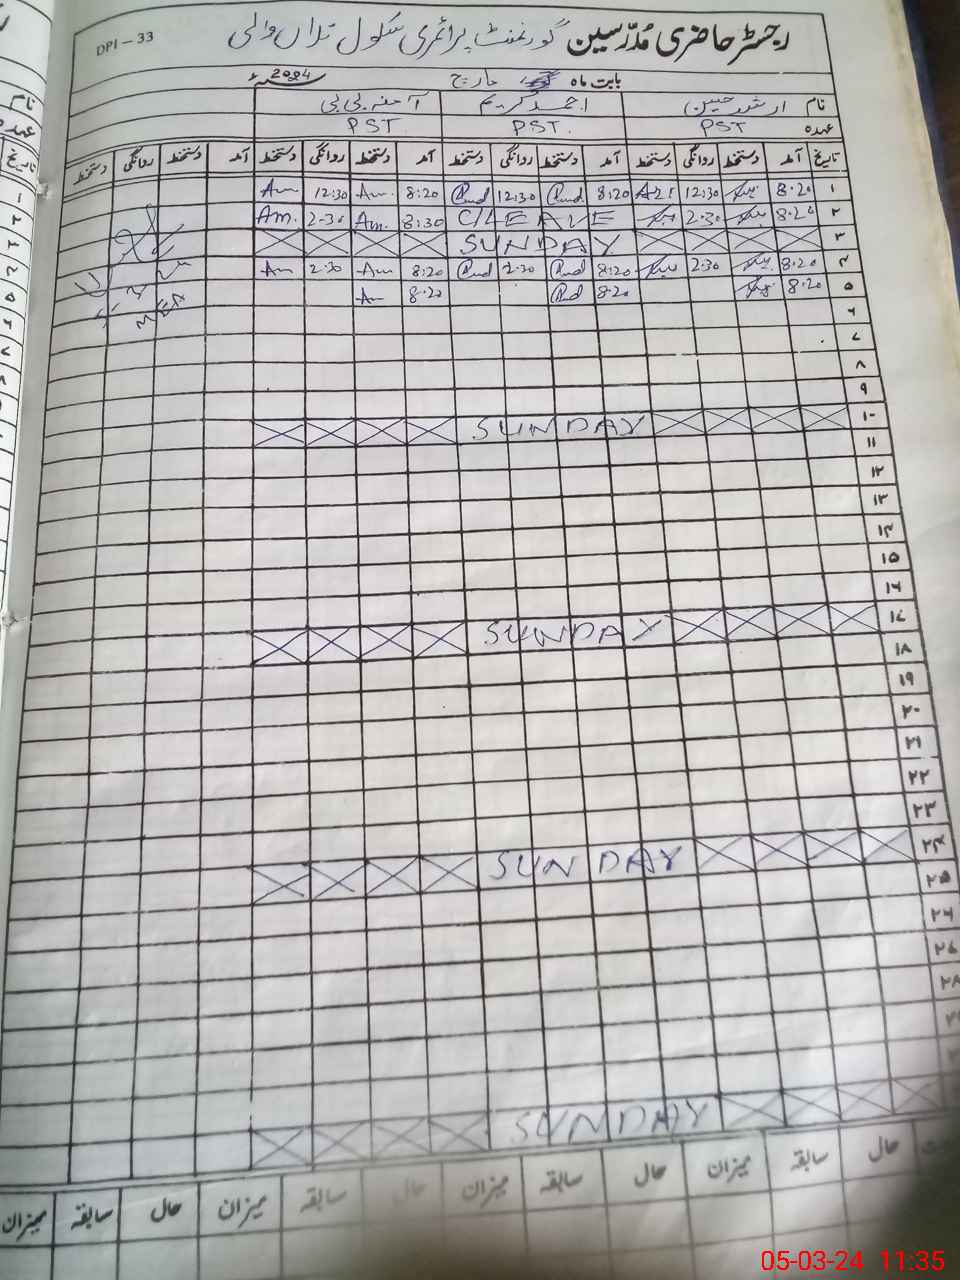 DPI - 33
رجسٹر حاضری مُدرّسین گورنمنٹ پرائمری سکول تراں والی
بابت ماہ مارچ 2024ء
نام ارشد حسین احمد کریم آمنہ بی بی
عہدہ PST PST. PST
تاریخ آمد دستخط روانگی دستخط آمد دستخط روانگی دستخط آمد دستخط روانگی دستخط آمد دستخط روانگی دستخط
۱ 8.20 12:30 8:20 12:30 8:20 Am. 12:30 Am
۲ 8.20 2.30 C/LEAVE 8:30 Am. 2.30 Am.
۳ SUNDAY
۴ 8.20 2.30 8:20 2.30 8:20 Am 2.30 Am
۵ 8.20 8.20 8.20 Am
۶
۷
۸
۹
۱۰ SUNDAY
۱۱
۱۲
۱۳
۱۴
۱۵
۱۶
۱۷ SUNDAY
۱۸
۱۹
۲۰
۲۱
۲۲
۲۳
۲۴ SUNDAY
۲۵
۲۶
۲۷
۲۸
SUNDAY
حال سابقہ میزان حال سابقہ میزان حال سابقہ میزان حال سابقہ میزان
05-03-24 11:35